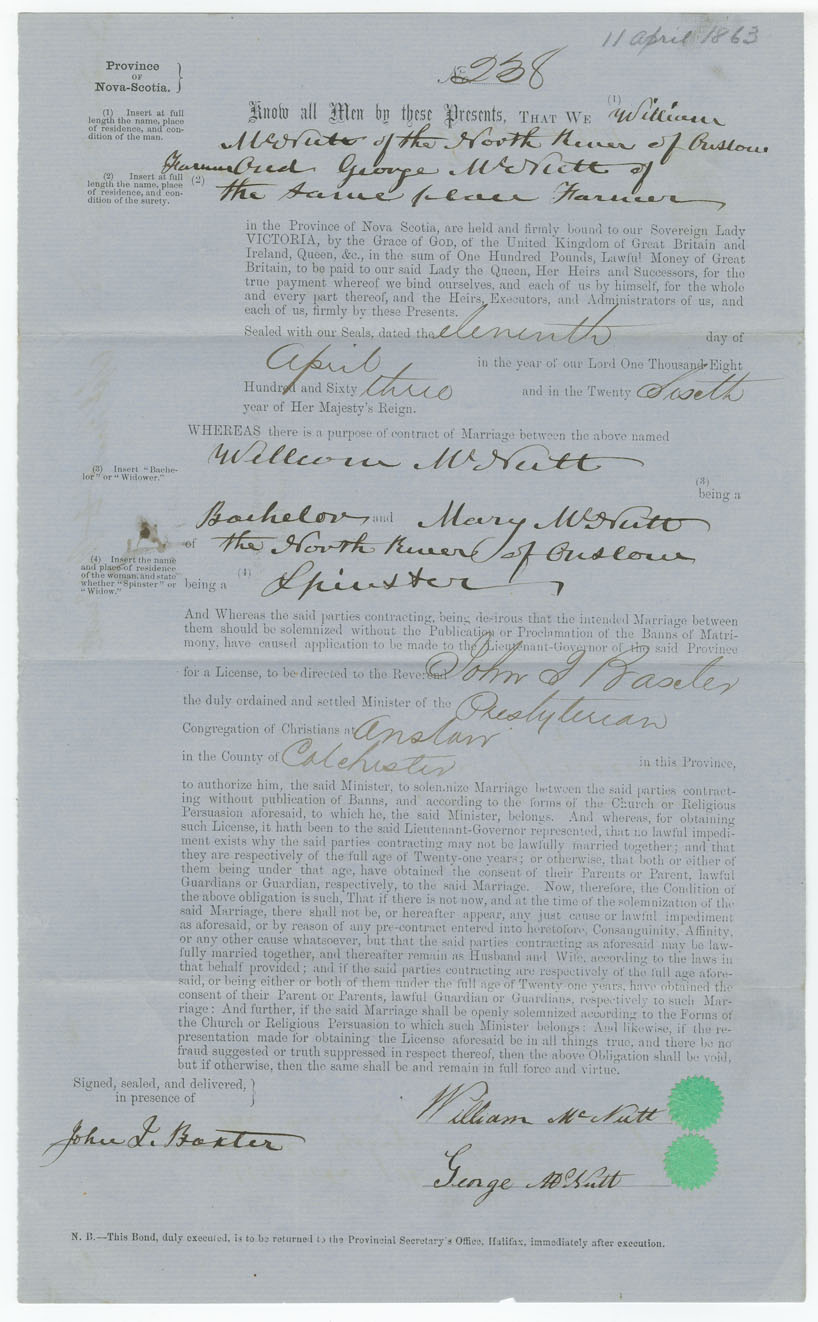 11 April 1863
Province
OF
Nova-Scotia.
No 238
(1) Insert at full
length the name, place
of residence, and con-
dition of the man.
Know all Men by these Presents, THAT WE (1) William
McNutt of the North River of Onslow
Farmer and George McNutt of
(2) Insert at full
length the name, place
of residence, and con-
dition of the surety.
(2) the same place Farmer
in the Province of Nova Scotia, are held and firmly bound to our Sovereign Lady
VICTORIA, by the Grace of GOD, of the United Kingdom of Great Britain and
Ireland, Queen, &c., in the sum of One Hundred Pounds, Lawful Money of Great
Britain, to be paid to our said Lady the Queen, Her Heirs and Successors, for the
true payment whereof we bind ourselves, and each of us by himself, for the whole
and every part thereof, and the Heirs, Executors, and Administrators of us, and
each of us, firmly by these Presents.
Sealed with our Seals, dated the eleventh day of
April in the year of our Lord One Thousand Eight
Hundred and Sixty three and in the Twenty Sixth
year of Her Majesty's Reign.
WHEREAS there is a purpose of contract of Marriage between the above named
William McNutt
(3) Insert "Bache-
lor" or "Widower."
(3)
being a
Bachelor and Mary McNutt
of the North River of Onslow
(4) Insert the name
and place of residence
of the woman, and state
whether "Spinster" or
"Widow."
being a (4) Spinster
And Whereas the said parties contracting, being desirous that the intended Marriage between
them should be solemnized without the Publication or Proclamation of the Banns of Matri-
mony, have caused application to be made to the Lieutenant-Governor of the said Province
for a License, to be directed to the Reverend John I Baxter
the duly ordained and settled Minister of the Presbyterian
Congregation of Christians at Onslow
in the County of Colchester in this Province,
to authorize him, the said Minister, to solemnize Marriage between the said parties contract-
ing without publication of Banns, and according to the forms of the Church or Religious
Persuasion aforesaid, to which he, the said Minister, belongs. And whereas, for obtaining
such License, it hath been to the said Lieutenant-Governor represented, that no lawful impedi-
ment exists why the said parties contracting may not be lawfully married together; and that
they are respectively of the full age of Twenty-one years; or otherwise, that both or either of
them being under that age, have obtained the consent of their Parents or Parent, lawful
Guardians or Guardian, respectively, to the said Marriage. Now, therefore, the Condition of
the above obligation is such, That if there is not now, and at the time of the solemnization of the
said Marriage, there shall not be, or hereafter appear, any just cause or lawful impediment
as aforesaid, or by reason of any pre-contract entered into heretofore, Consanguinity, Affinity,
or any other cause whatsoever, but that the said parties contracting as aforesaid may be law-
fully married together, and thereafter remain as Husband and Wife, according to the laws in
that behalf provided; and if the said parties contracting are respectively of the full age afore-
said, or being either or both of them under the full age of Twenty one years, have obtained the
consent of their Parent or Parents, lawful Guardian or Guardians, respectively to such Mar-
riage: And further, if the said Marriage shall be openly solemnized according to the Forms of
the Church or Religious Persuasion to which such Minister belongs: And likewise, if the re-
presentation made for obtaining the License aforesaid be in all things true, and there be no
fraud suggested or truth suppressed in respect thereof, then the above Obligation shall be void,
but if otherwise, then the same shall be and remain in full force and virtue.
Signed, sealed, and delivered,
in presence of
William McNutt
John I. Baxter
George McNutt
N. B.—This Bond, duly executed, is to be returned to the Provincial Secretary's Office, Halifax, immediately after execution.